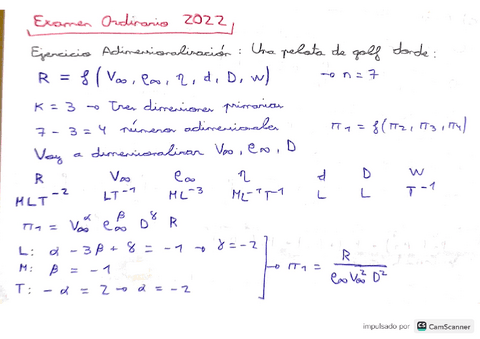 Examen Ordinario 2022
Ejercicio Adimensionalización: Una pelota de golf donde:
R = f (V∞, ρ∞, η, d, D, w) → n = 7
K = 3 → Tres dimensiones primarias
7 - 3 = 4 números adimensionales π₁ = f(π₂, π₃, π₄)
Voy a dimensionalizar V∞, ρ∞, D
R V∞ ρ∞ η d D W
MLT⁻² LT⁻¹ ML⁻³ ML⁻¹T⁻¹ L L T⁻¹
π₁ = V∞^α ρ∞^β D^γ R
L: α - 3β + γ = -1 → γ = -2
M: β = -1 → π₁ = R / (ρ∞ V∞² D²)
T: -α = 2 → α = -2
impulsado por CS CamScanner